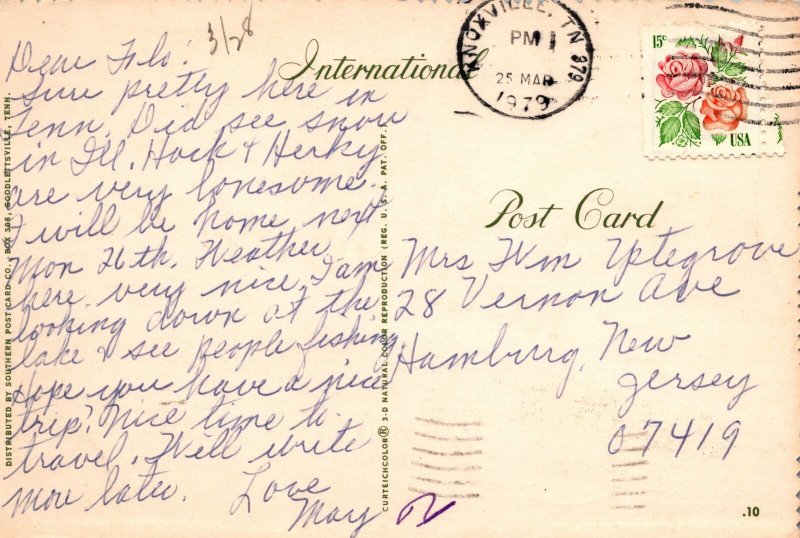 3/28
Dear Flo:
Sure pretty here in
Tenn. Did see snow
in Ill. Hock & Herky
are very lonesome.
I will be home next
Mon 26th. Weather
here very nice. I am
looking down at the
lake & see people fishing
Hope you have a nice
trip? Nice time to
travel. Will write
more later. Love
May
International
Post Card
KNOXVILLE, TN 379
PM
25 MAR
1979
15c
USA
Mrs Wm Uptegrove
28 Vernon Ave
Hamburg, New
Jersey
07419
DISTRIBUTED BY SOUTHERN POST CARD CO. - BOX 306, GOODLETTSVILLE, TENN.
CURTEICHCOLOR® 3-D NATURAL COLOR REPRODUCTION (REG. U. S. A. PAT. OFF.)
.10